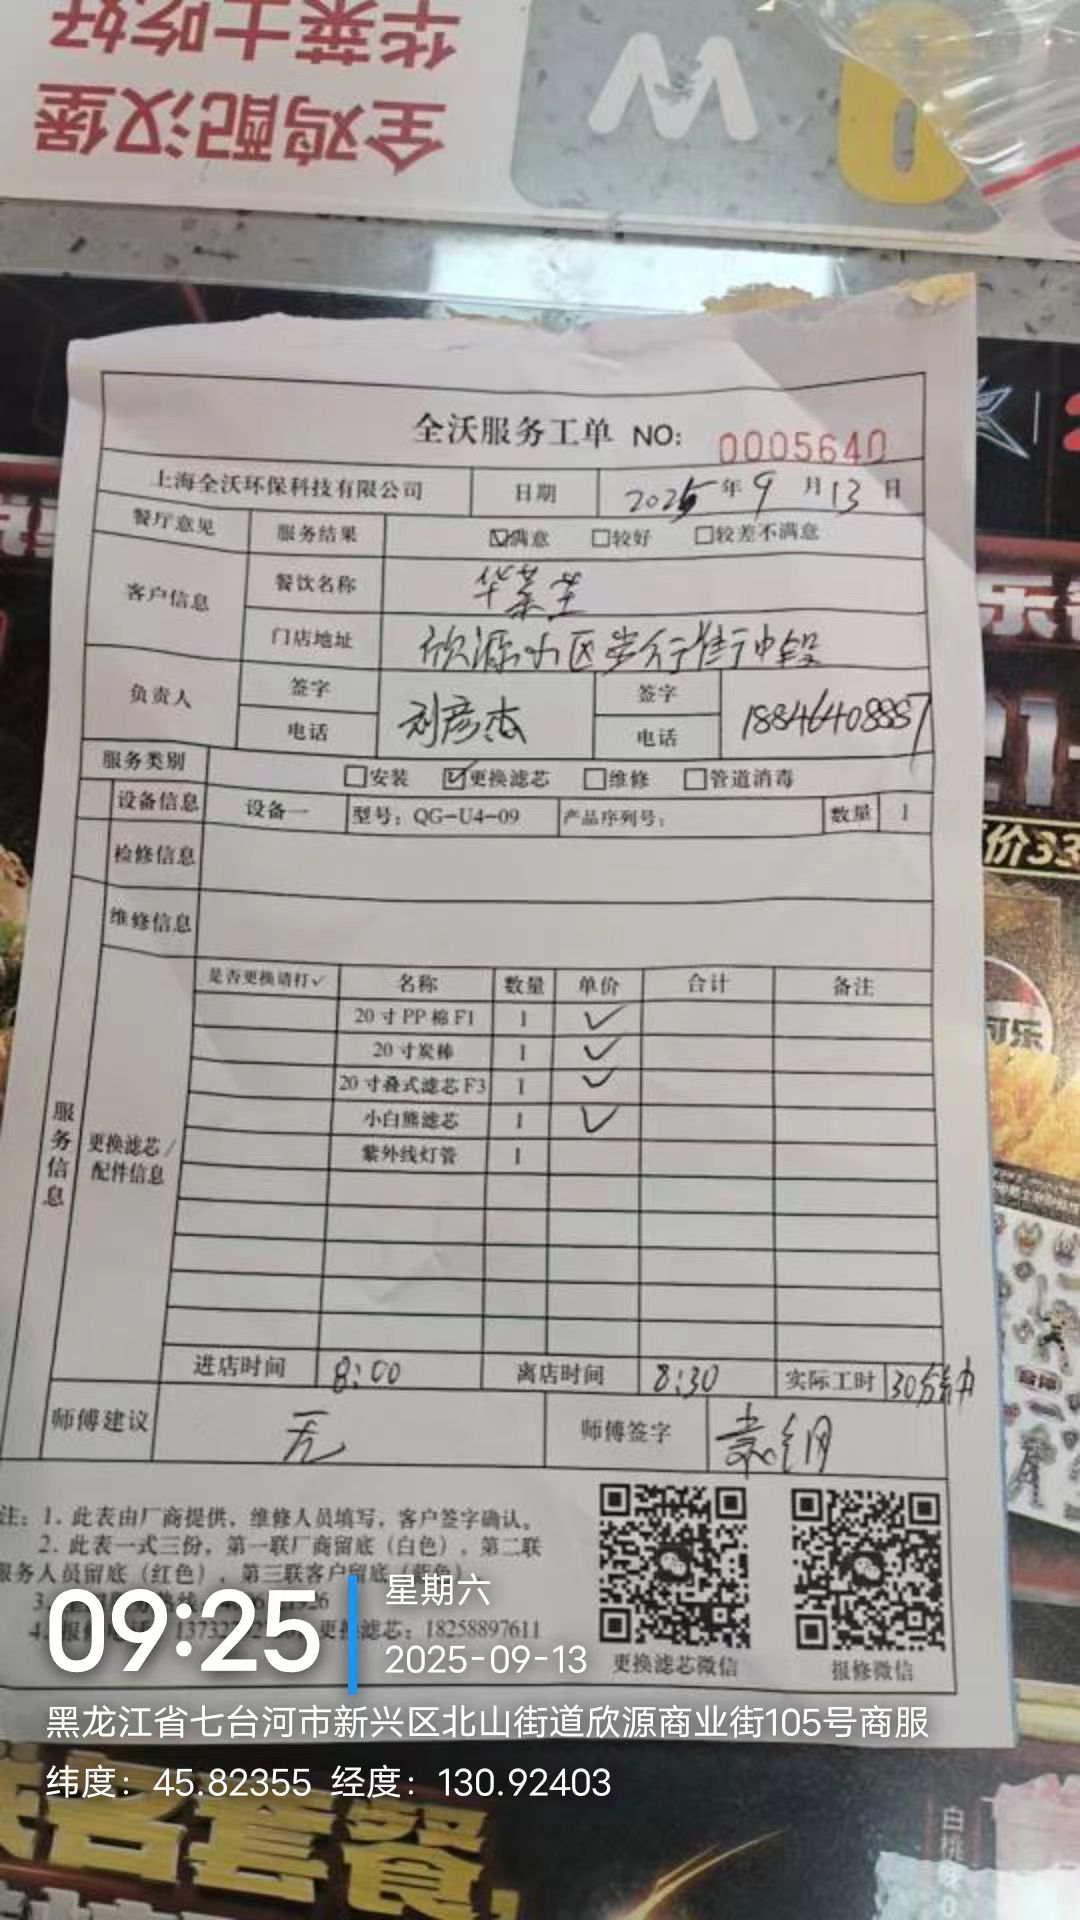 华莱士吃好
全鸡配汉堡
全沃服务工单 NO: 0005640
上海全沃环保科技有限公司 日期 2025年9月13日
餐厅意见 服务结果 ☑满意 □较好 □较差不满意
客户信息 餐饮名称 华莱士
门店地址 欣源小区步行街中段
负责人 签字 电话 刘彦杰 签字 电话 18846408887
服务类别 □安装 ☑更换滤芯 □维修 □管道消毒
设备信息 设备一 型号：QG-U4-09 产品序列号： 数量 1
检修信息
维修信息
服务信息
更换滤芯/配件信息
是否更换请打✓ 名称 数量 单价 合计 备注
20寸PP棉F1 1 ✓
20寸炭棒 1 ✓
20寸叠式滤芯F3 1 ✓
小白熊滤芯 1 ✓
紫外线灯管 1
进店时间 8:00 离店时间 8:30 实际工时 30分钟
师傅建议 无 师傅签字
注：1. 此表由厂商提供，维修人员填写，客户签字确认。
2. 此表一式三份，第一联厂商留底（白色），第二联
服务人员留底（红色），第三联客户留底
更换滤芯：18258897611
更换滤芯微信 报修微信
09:25 星期六
2025-09-13
黑龙江省七台河市新兴区北山街道欣源商业街105号商服
纬度：45.82355 经度：130.92403
价33
可乐
套餐
白桃